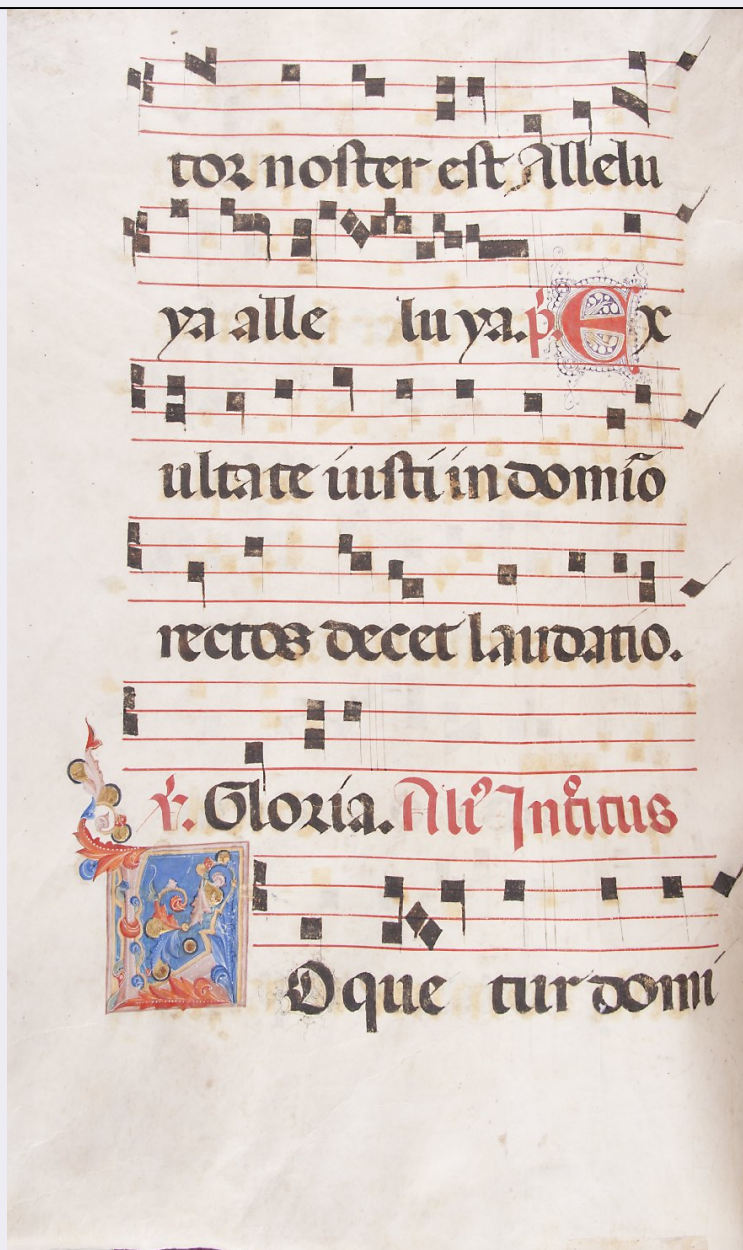 tor noster est Allelu
ya alle luya. p̄. Ex
ultate iusti in domīo
rectos decet laudatio.
v̄. Gloria. Alī Introitus
Oque tur domi